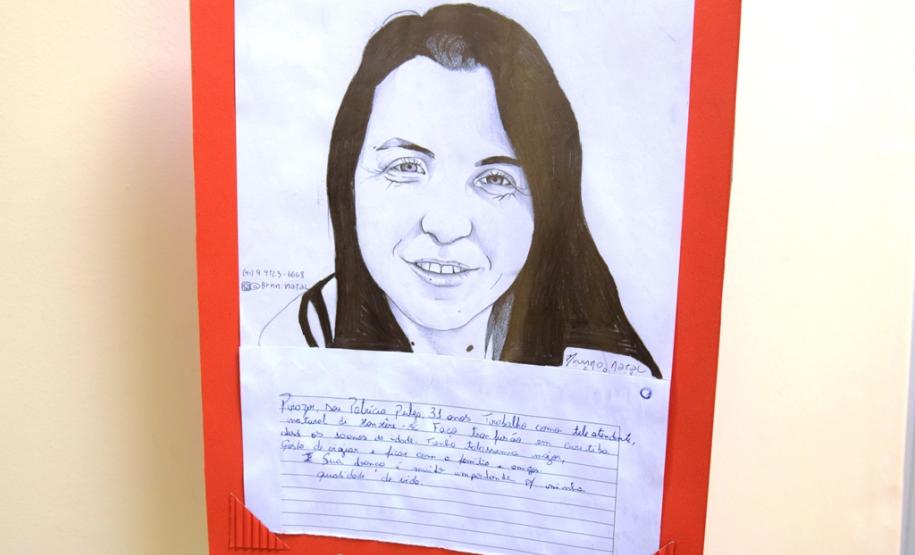 (41) 9 9723-6668
@Brnn.natal
Bruno Natal
Prazer, sou Patrícia Pulga, 31 anos. Trabalho como tele atendente,
natural di Xanxêre - SC. Faço tranfusão em curitiba
desd os anos de idade. Tenho talassemia major,
Gosto de viajar e ficar com a família e amigos.
Sua doação é muito importante p/ minha
qualidade de vida.